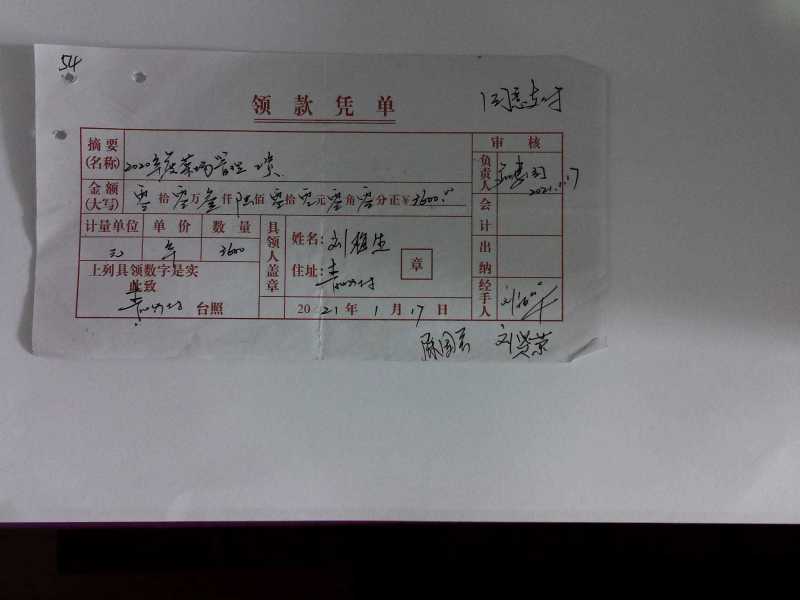 54
领款凭单
同意支付
摘要(名称) 2020年度菜场管理费
审核
负责人 2021.1.17
金额(大写) 零拾零万叁仟陆佰零拾零元零角零分正¥3600.00
会计
计量单位 单价 数量
元 年 3600
具领人盖章
姓名:刘
住址:
章
出纳
上列具领数字是实
此致
台照
2021年1月17日
经手人
刘贤荣